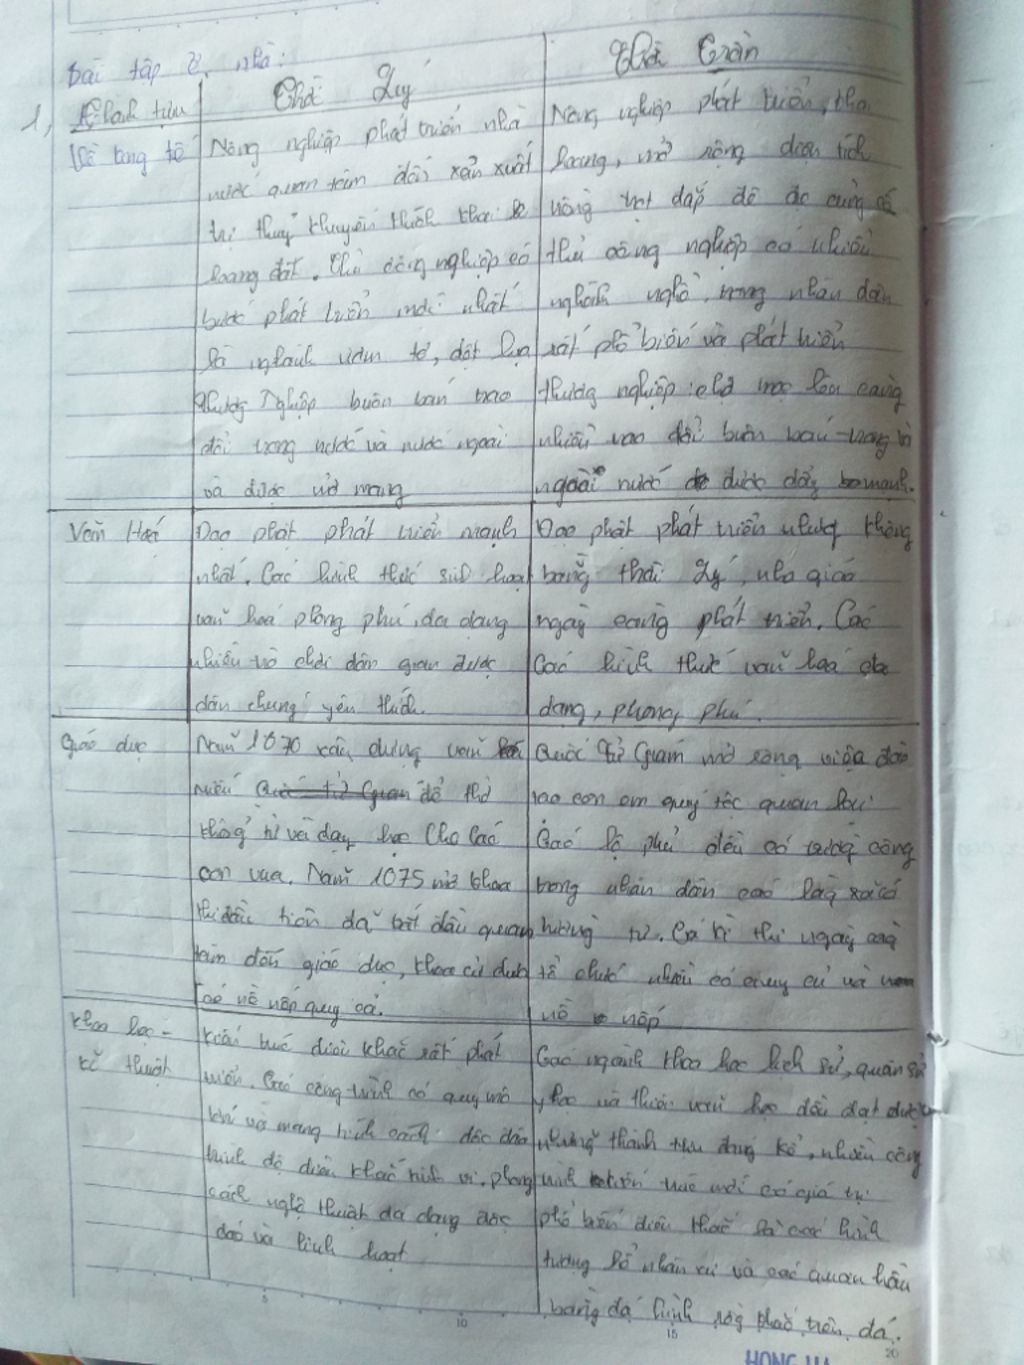 bài tập ở nhà:
1, Thành tựu
Thời Lý
Thời Trần
Về
Nông nghiệp phát triển nhà
nước quan tâm đến sản xuất
trị thuỷ khuyến khích khai
hoang đất. Thủ công nghiệp có
bước phát triển mới nhất
là nghành ươm tơ, dệt lụa
thương Nghiệp buôn bán trao
đổi trong nước và nước ngoài
và được mở mang
Nông nghiệp phát triển, khai
hoang, mở rộng diện tích
trồng trọt đắp đê
thủ công nghiệp có nhiều
nghành nghề, trong nhân dân
rất phổ biến và phát triển
thương nghiệp: chợ mọc lên càng
nhiều trao đổi buôn bán trong và
ngoài nước được đẩy mạnh.
Văn Hoá
Đạo phật phát triển mạnh
nhất. Các hình thức sinh hoạt
văn hoá phong phú, đa dạng
nhiều trò chơi dân gian được
dân chúng yêu thích.
Đạo phật phát triển nhưng không
bằng thời Lý, nho giáo
ngày càng phát triển. Các
Các hình thức văn hoá đa
dạng, phong phú.
Giáo dục
Năm 1070 xây dựng văn
miếu Quốc tử Giám để thờ
khổng tử và dạy học Cho các
con vua. Năm 1075 mở khoa
thi đầu tiên đã bắt đầu quan
tâm đến giáo dục, khoa cử
có nề nếp quy cả.
Quốc Tử Giám mở rộng việc đào
tạo con em quý tộc quan lại
Các lộ phủ đều có trường công
trong nhân dân các làng xã có
trường tư. Các kì thi ngày càng
tổ chức nhiều có quy củ và
nề nếp
Khoa học -
kĩ thuật
kiến trúc điêu khắc rất phát
triển. Các công trình có quy mô
và mang tính cách độc đáo
trình độ điêu khắc tinh vi, phong
cách nghệ thuật đa dạng độc
đáo và linh hoạt
Các ngành khoa học lịch sử, quân sự
y học và thiên văn học đều đạt được
những thành tựu đáng kể, nhiều công
trình kiến trúc mới có giá trị
phổ biến điêu khắc là các hình
tượng hổ nhân sư và các quan hầu
bằng đá hình rồng khắc trên đá.
5
10
15
20
HONG HA